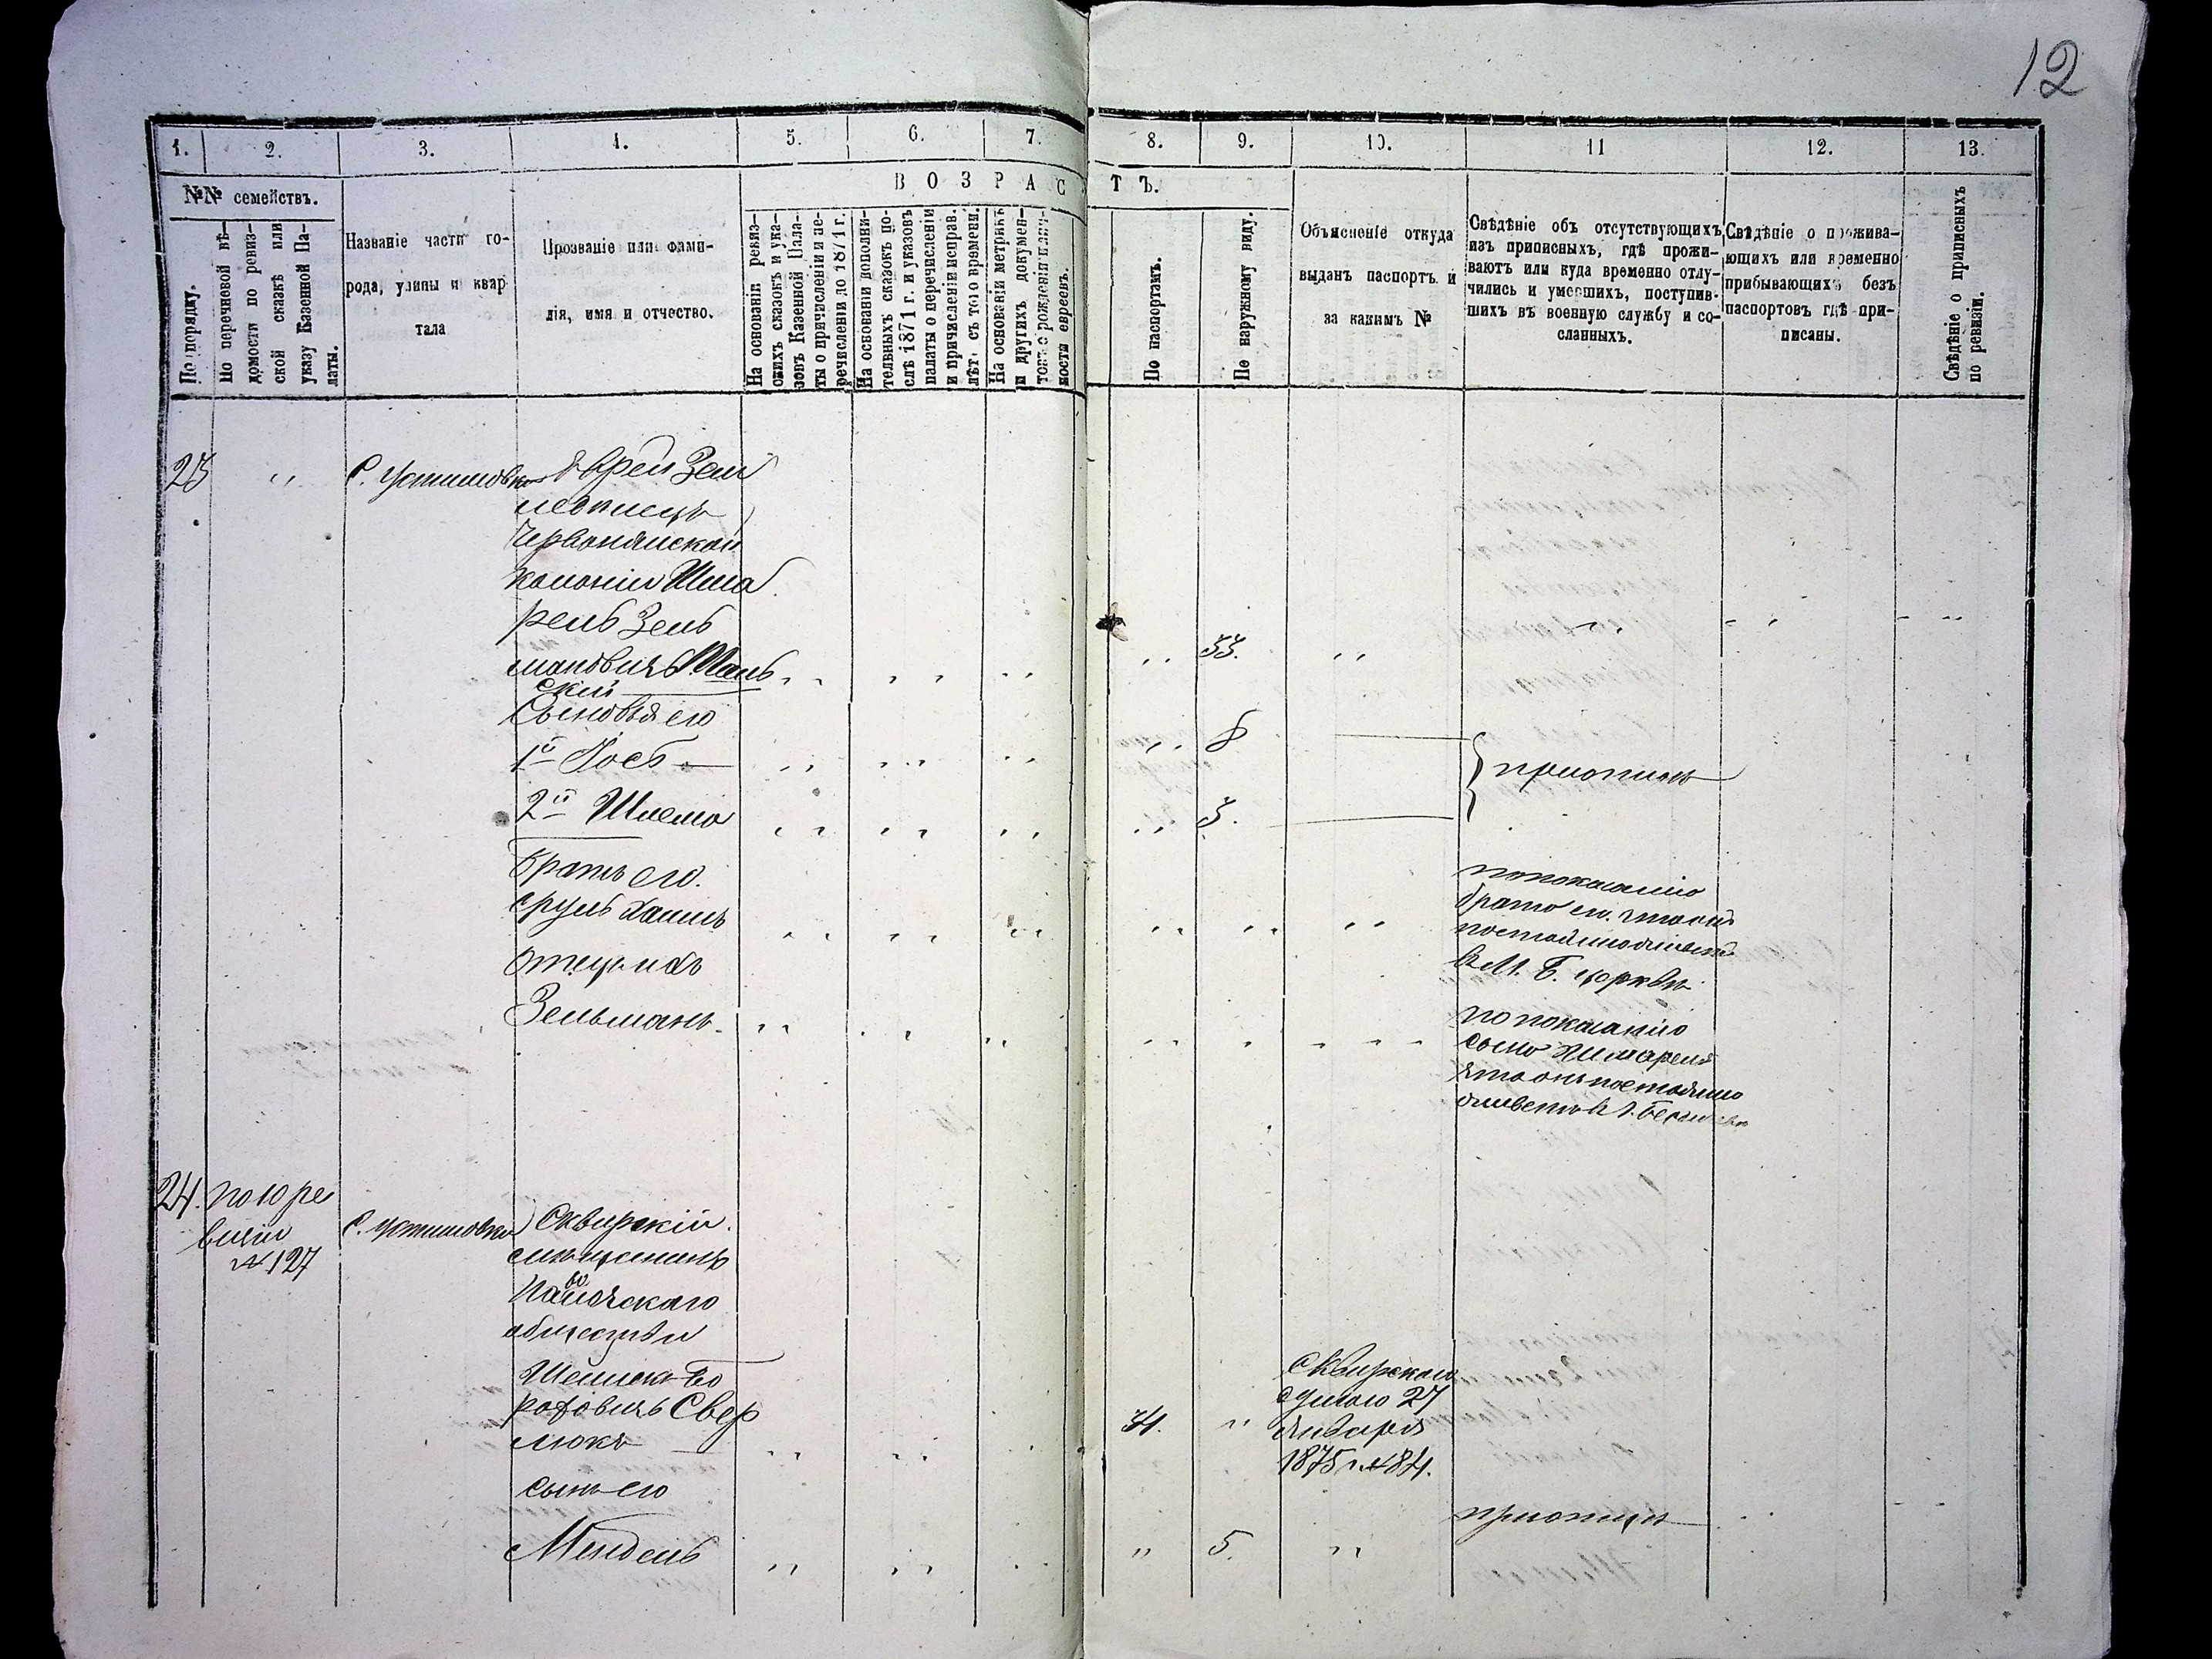 12
1. 2. 3. 4. 5. 6. 7. 8. 9. 10. 11 12. 13.
№№ семействъ.
ВОЗРАСТЪ.
По порядку.
По перечневой вѣ-
домости по ревиз-
ской сказкѣ или
указу Казенной Па-
латы.
Названіе части го-
рода, улицы и квар-
тала
Прозваніе или фами-
лія, имя и отчество.
На основаніи ревиз-
скихъ сказокъ и ука-
зовъ Казенной Пала-
ты о причисленіи и пе-
речисленіи до 1871 г.
На основаніи дополни-
тельныхъ сказокъ по-
слѣ 1871 г. и указовъ
палаты о перечисленіи
и причисленіи исправ.
лѣтъ съ того времени.
На основаніи метрикъ
и других докумен-
товъ о рожденіи
ности евреевъ.
По паспортамъ.
По наружному виду.
Объясненіе откуда
выданъ паспортъ и
за какимъ №
Свѣдѣніе объ отсутствующихъ
изъ приписныхъ, гдѣ прожи-
ваютъ или куда временно отлу-
чились и умершихъ, поступив-
шихъ въ военную службу и со-
сланныхъ.
Свѣдѣніе о прожива-
ющихъ или временно
прибывающихъ безъ
паспортовъ гдѣ при-
писаны.
Свѣдѣніе о приписныхъ
по ревизіи.
23 " С. Устимовка Еврей Зем
ледѣлецъ
Червонянской
колоніи Шма
рель Зель
мановичъ Шаль
скій " " " " 33. "
Сыновья его
1й Іось " " " " 8
2й Шлема " " " " 3.
братъ его.
Сруль Хаимъ " " " " " "
по показанію
брата ег. что онъ
в М. Б. Церкви
Отецъ ихъ
Зельманъ. " " " " " "
по показанію
сына Шмареля
что онъ постоянно
24. по 10 ре
визіи
№ 127
С. Устимовка Сквирскій
мѣщанинъ
общества
родовичъ Свер
люкъ " " 34. "
Сквирскаго
27
января
1875 г. № 84.
сынъ его
Мендель " " " 5. "